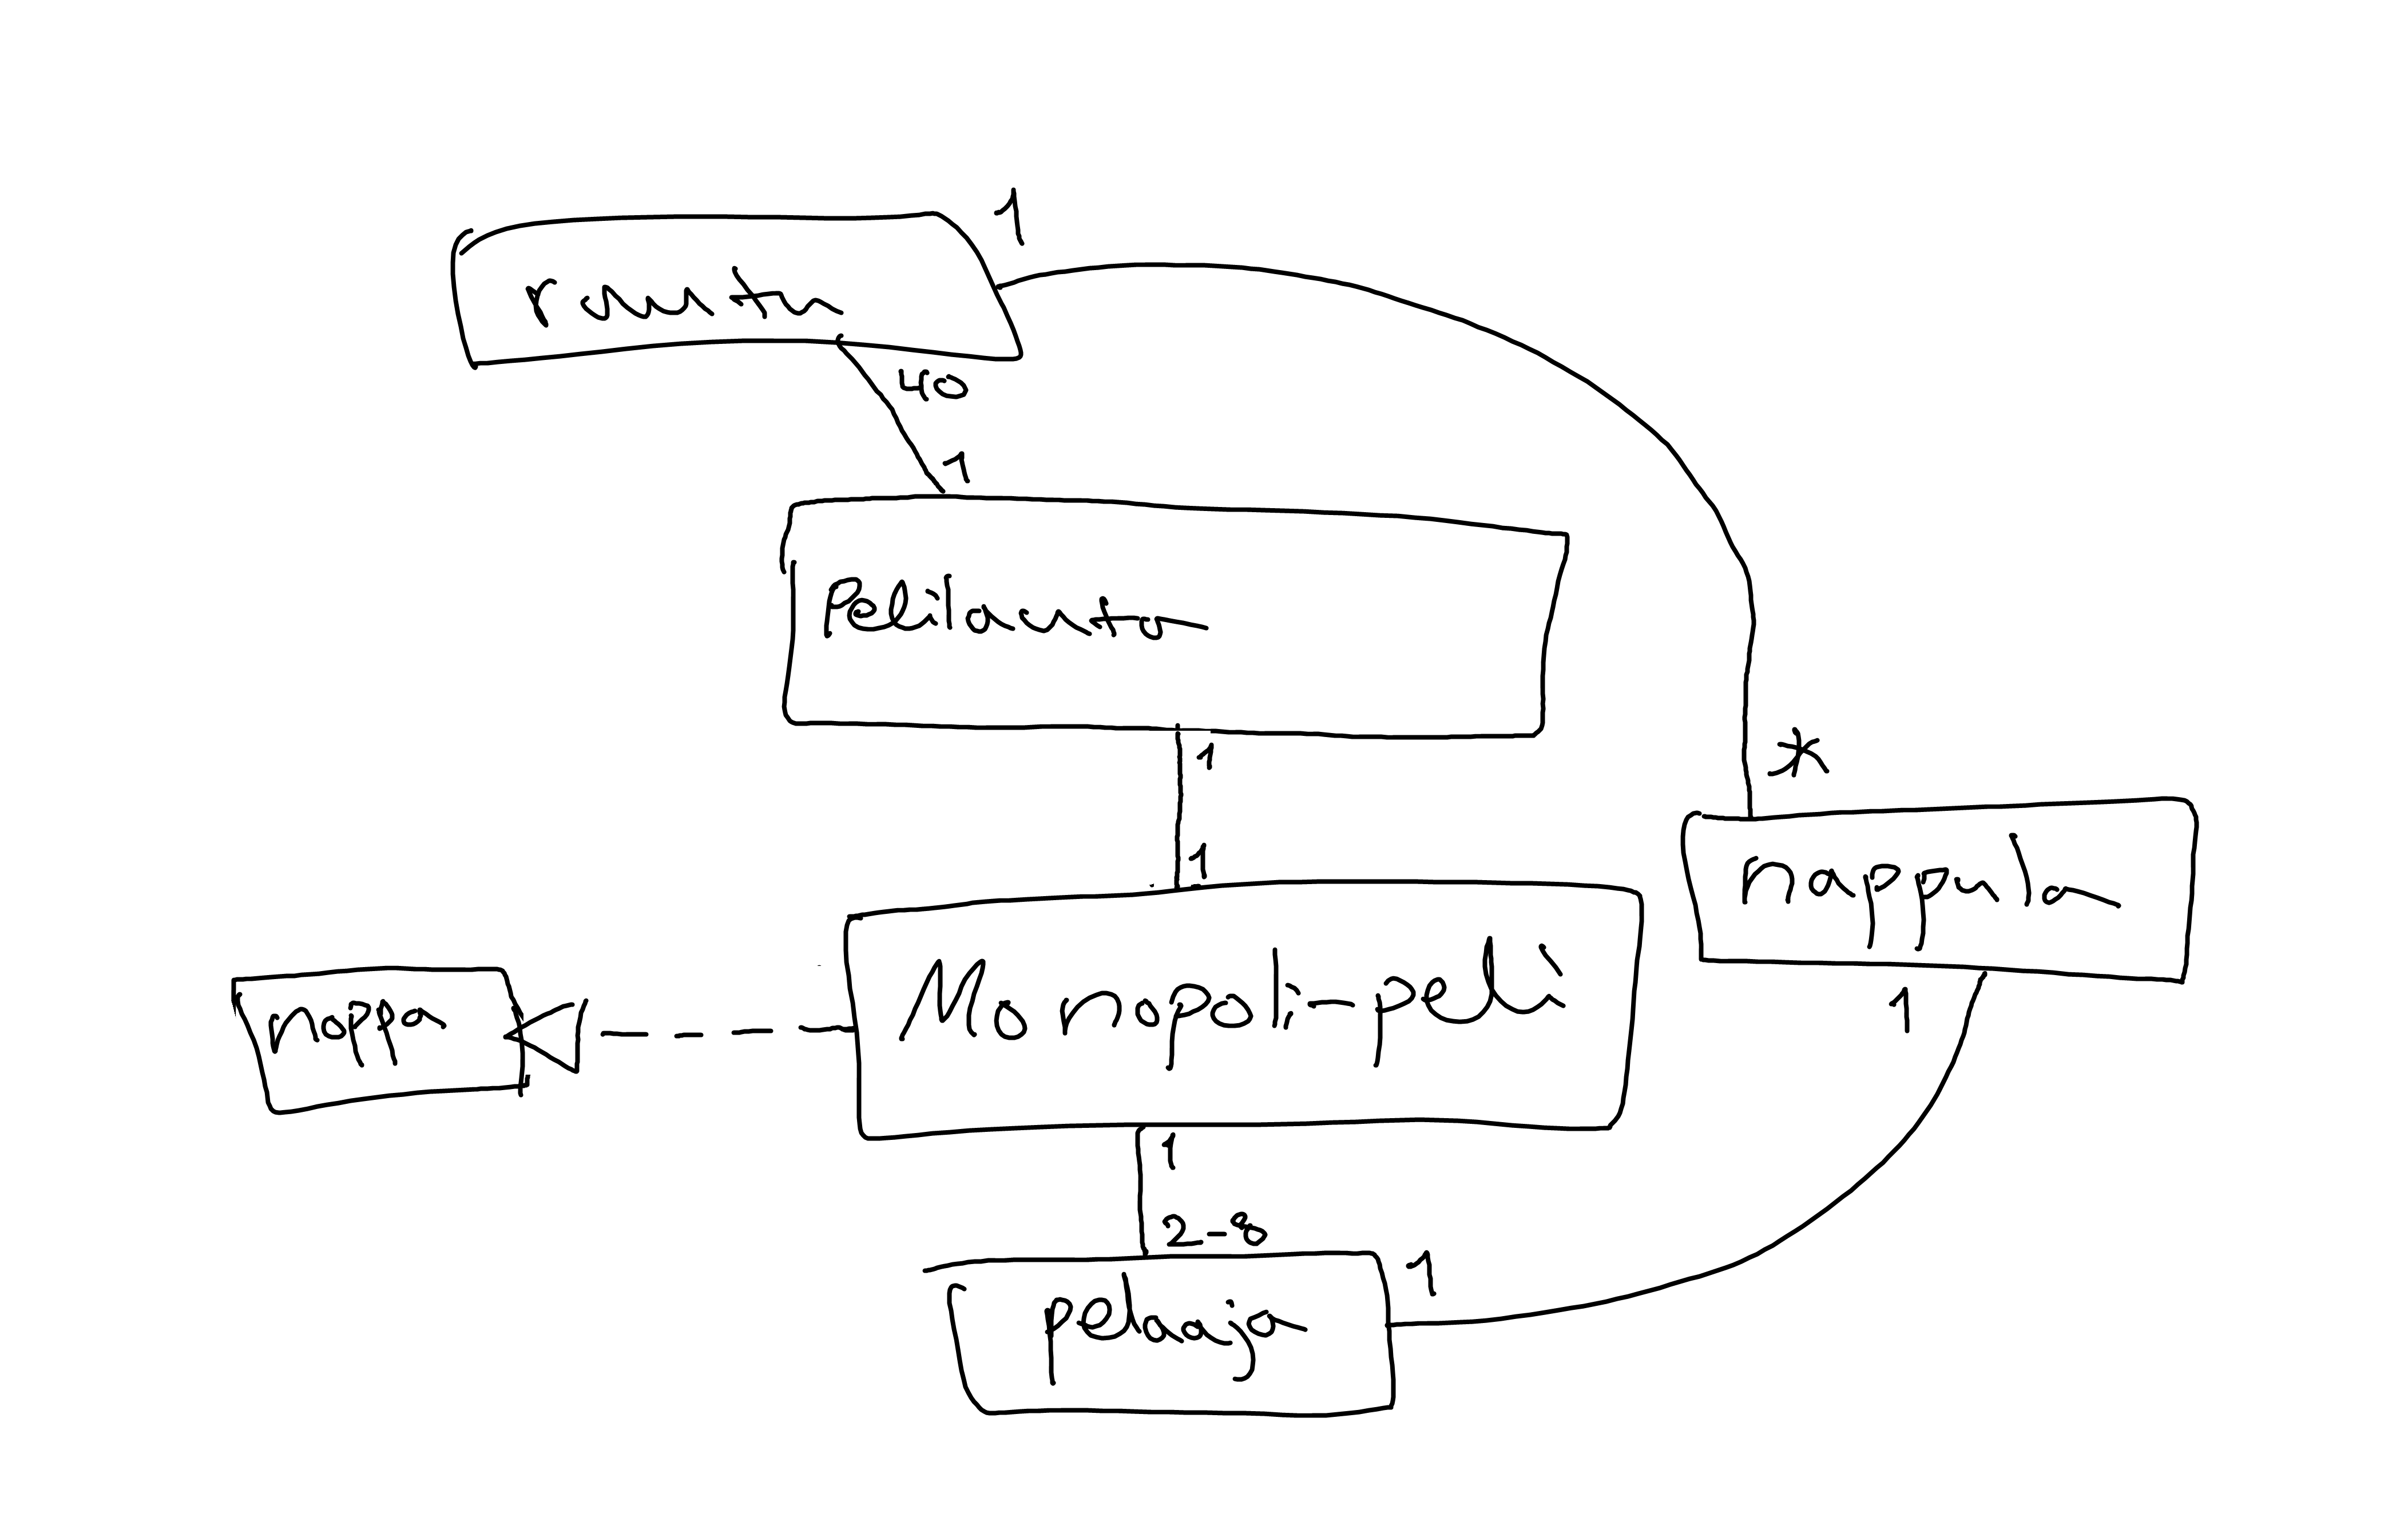 1
ruutu
40
1
Pelilauta
1
*
1
nappula
Monopoli-peli
noppa
1
1
2-8
1
pelaaja